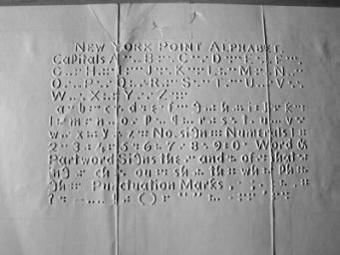 NEW YORK POINT ALPHABET.
Capitals A B C D E F
G H I J K L M N
O P Q R S T U V
W X Y Z
a b c d e f g h i j k
l m n o p q r s t u v
w x y z No. sign Numerals 1
2 3 4 5 6 7 8 9 0 Word &
Partword Signs the and of that
ing ch ou sh th wh ph
gh Punctuation Marks